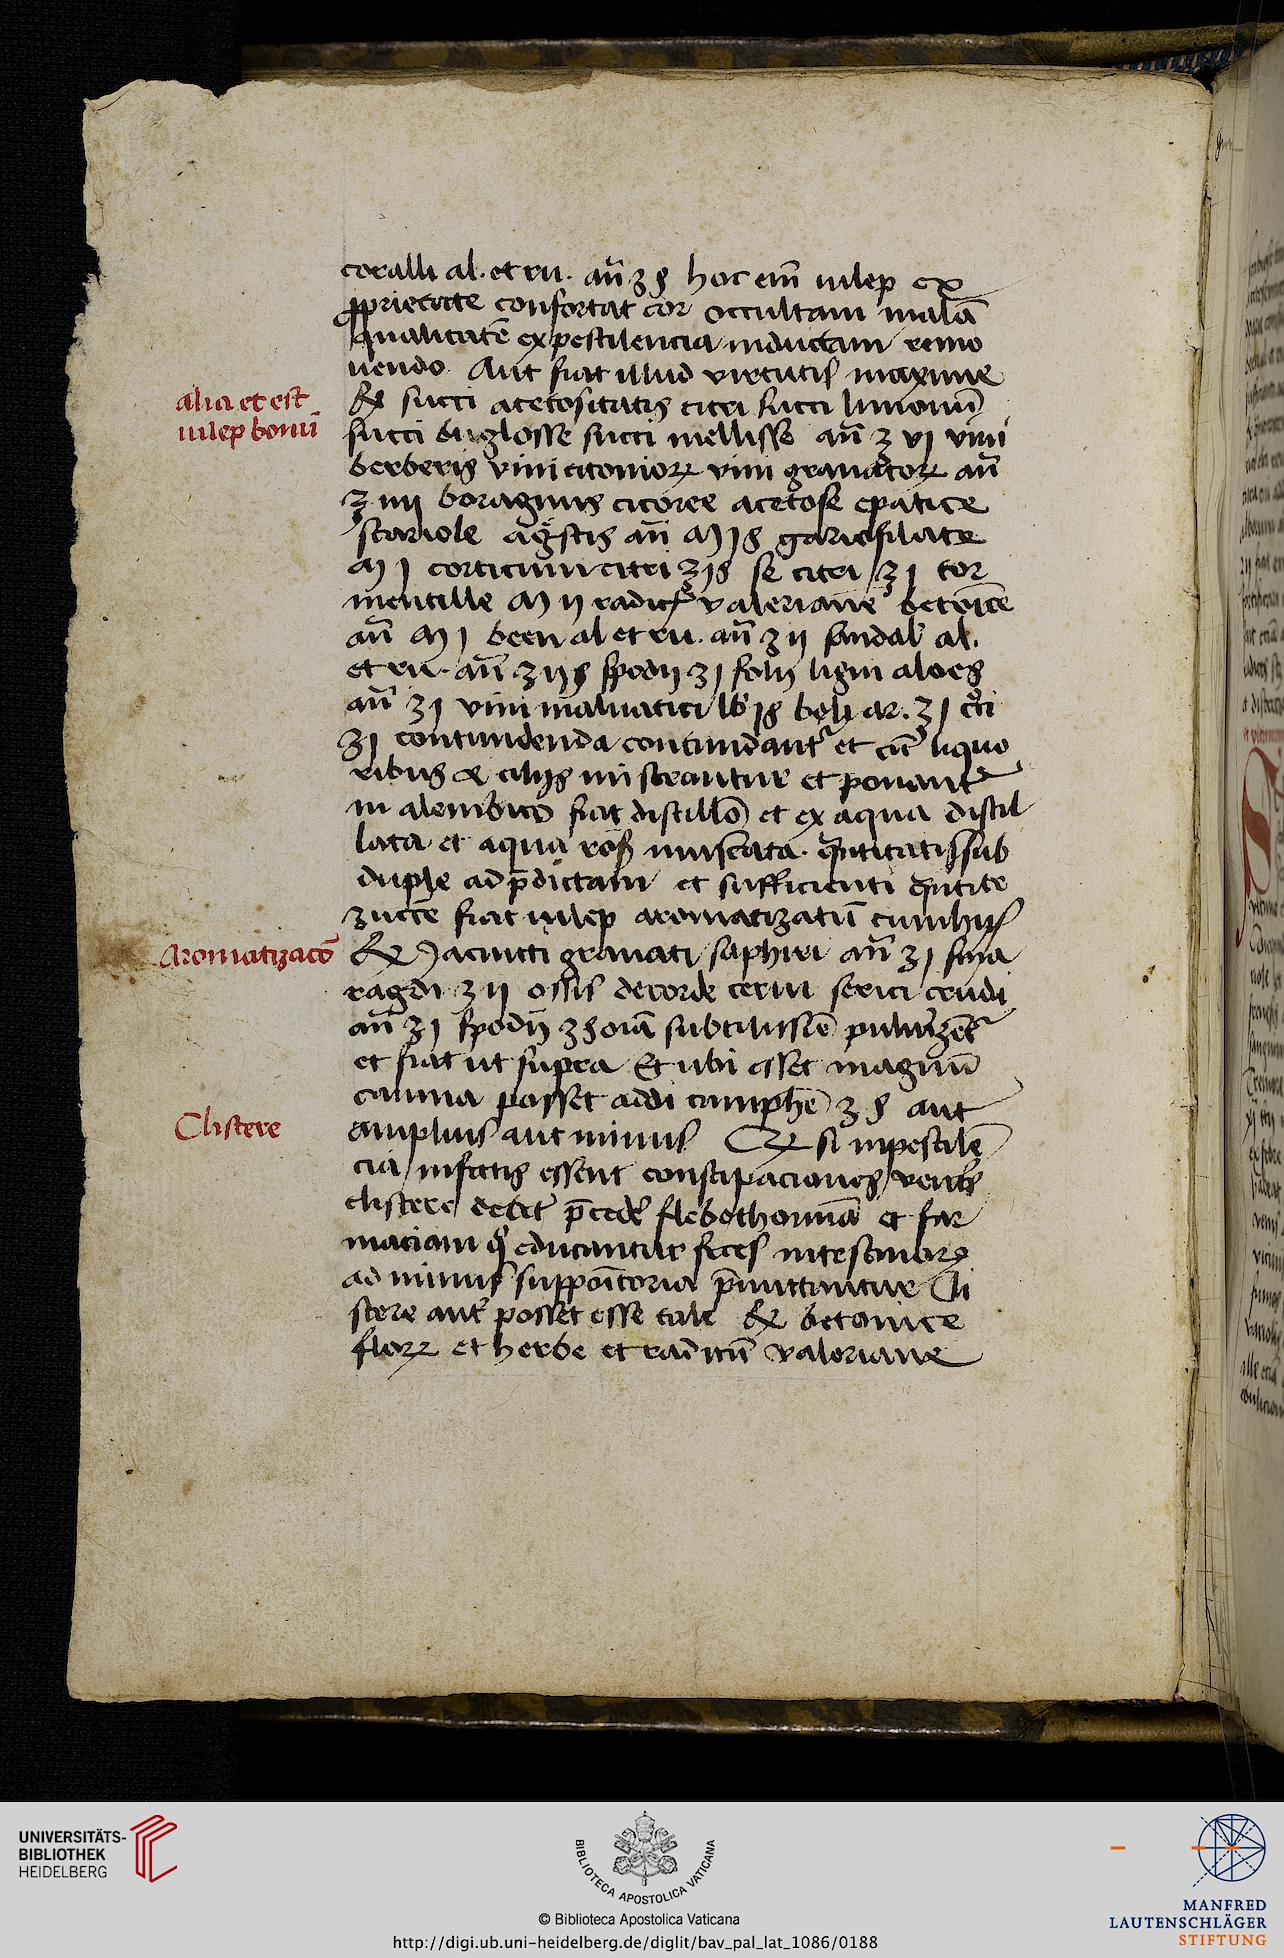 coralli al. et ru. añ ʒ ß hoc em̄ iulep ex
ꝓprietate confortat cor occultam malā
qualitatē ex pestilencia inductam remo
uendo Aut fiat illud virtutis maxime
alia et est
iulep bonū
℞ succi acetositatis citri succi limonū
succi buglosse succi mellisse añ ʒ vj vini
berberis vini citonioꝝ vini granatoꝝ añ
ʒ iiij boraginis cicoree acetose epatice
scariole agͤstis añ M j ß gariofilate
M j corticum citri ʒ j ß se citri ʒ j tor
mentille M ij radicꝭ valeriane betoice
añ M j been al et ru. añ ʒ ij sandal' al.
et ru. añ ʒ ij ß spodij ʒ j folij ligni aloes
añ ʒ j vini maluatici lb j ß boli ar. ʒ j
ʒ j contundenda contundant' et cū liquo
ribus misceantur et ponant'
in alembico fiat distillō et ex aqua distil
lata et aqua roß muscata qͣntitatis sub
duple ad p̄dictam et sufficienti qͣntite
zucce fiat iulep aromatizatū cum hijs
Aromatizacō
℞ Jacincti granati saphiri añ ʒ j sma
ragdi ʒ ij ossis de corde cerui serici crudi
añ ʒ j spodij ʒ ß oīa subtilissīe puluizent'
et fiat ut supra Et ubi esset magnū
cauma posset addi camphē ʒ ß aut
Clistere
amplius aut minus si in pestilē
cia infectis essent constipaciones ventꝭ
clistere debet p̄cedē flebothomiā et far
maciam qͥ educantur feces intestinoꝝ
ad minus suppoītoria p̄mittantur Cli
stere aut' posset esse tale ℞ betonice
floꝝ et herbe et radicū valeriane
UNIVERSITÄTS-
BIBLIOTHEK
HEIDELBERG
BIBLIOTECA APOSTOLICA VATICANA
© Biblioteca Apostolica Vaticana
http://digi.ub.uni-heidelberg.de/diglit/bav_pal_lat_1086/0188
MANFRED
LAUTENSCHLÄGER
STIFTUNG